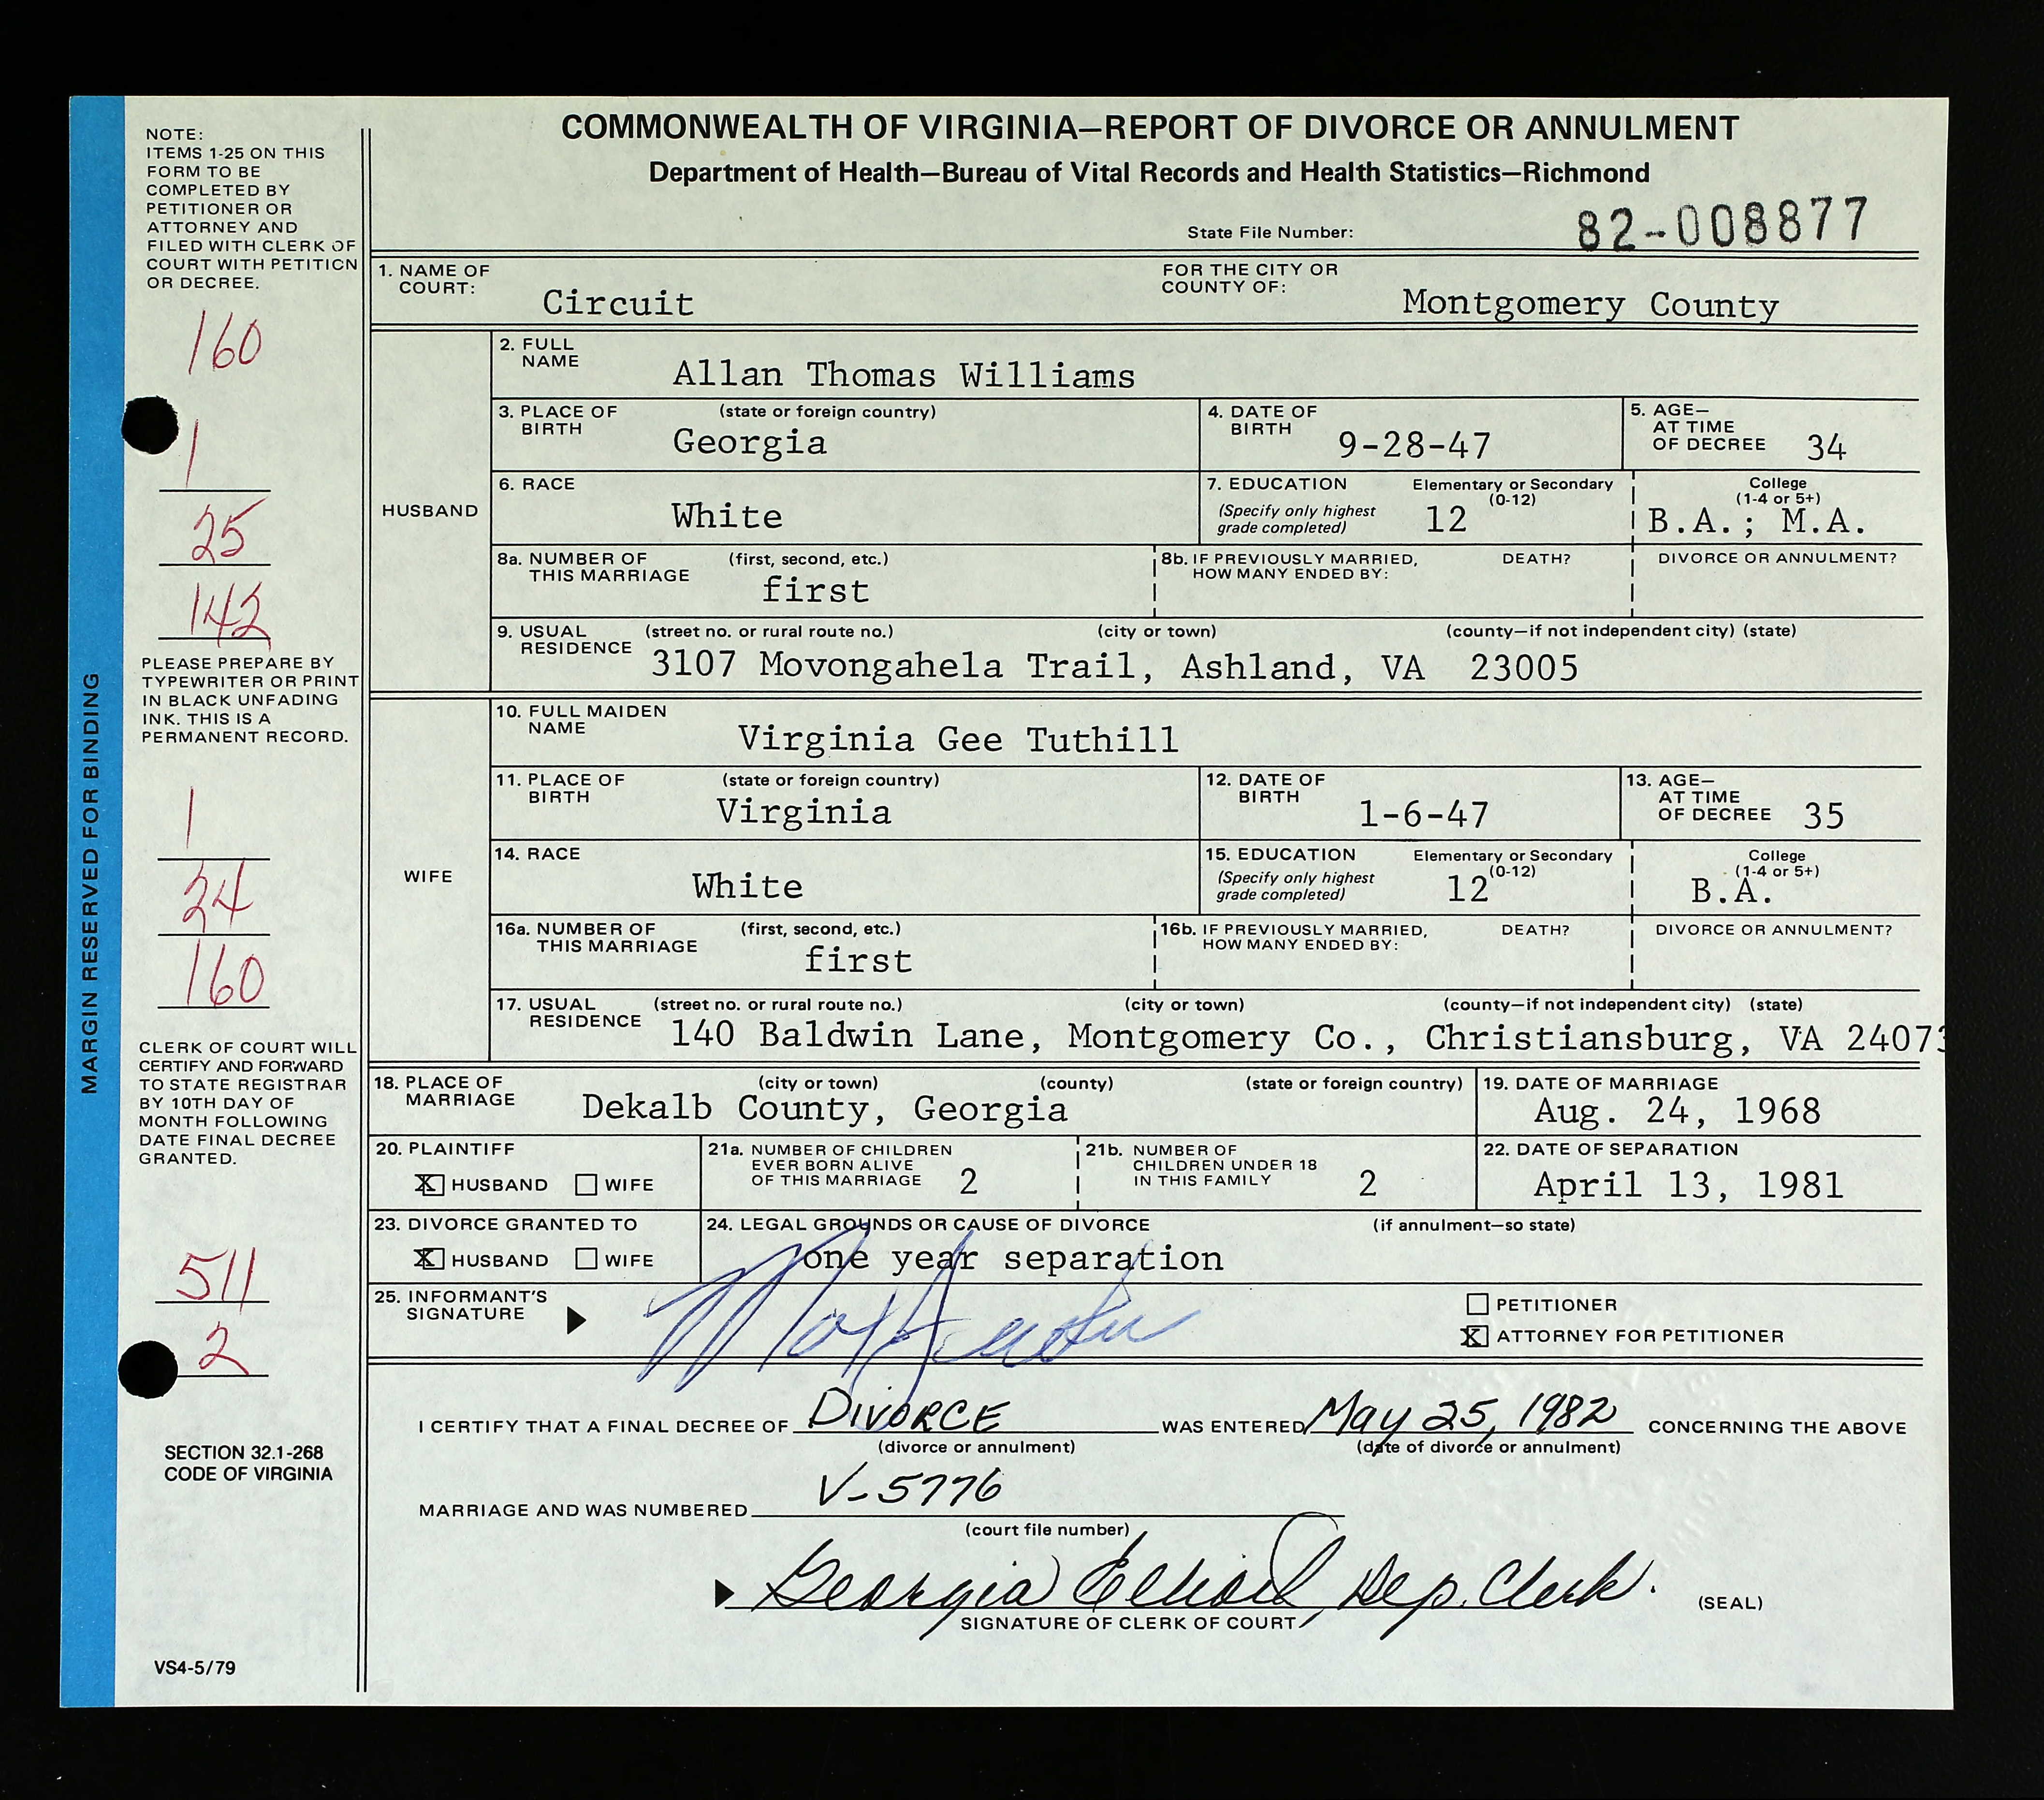 COMMONWEALTH OF VIRGINIA—REPORT OF DIVORCE OR ANNULMENT
Department of Health—Bureau of Vital Records and Health Statistics—Richmond
State File Number: 82-008877
MARGIN RESERVED FOR BINDING
NOTE:
ITEMS 1-25 ON THIS
FORM TO BE
COMPLETED BY
PETITIONER OR
ATTORNEY AND
FILED WITH CLERK OF
COURT WITH PETITION
OR DECREE.
160
1
25
142
PLEASE PREPARE BY
TYPEWRITER OR PRINT
IN BLACK UNFADING
INK. THIS IS A
PERMANENT RECORD.
1
24
160
CLERK OF COURT WILL
CERTIFY AND FORWARD
TO STATE REGISTRAR
BY 10TH DAY OF
MONTH FOLLOWING
DATE FINAL DECREE
GRANTED.
511
2
SECTION 32.1-268
CODE OF VIRGINIA
VS4-5/79
1. NAME OF COURT: Circuit FOR THE CITY OR COUNTY OF: Montgomery County
HUSBAND
2. FULL NAME Allan Thomas Williams
3. PLACE OF BIRTH (state or foreign country) Georgia 4. DATE OF BIRTH 9-28-47 5. AGE— AT TIME OF DECREE 34
6. RACE White 7. EDUCATION (Specify only highest grade completed) Elementary or Secondary (0-12) 12 College (1-4 or 5+) B.A.; M.A.
8a. NUMBER OF THIS MARRIAGE (first, second, etc.) first 8b. IF PREVIOUSLY MARRIED, HOW MANY ENDED BY: DEATH? DIVORCE OR ANNULMENT?
9. USUAL RESIDENCE (street no. or rural route no.) (city or town) (county—if not independent city) (state)
3107 Movongahela Trail, Ashland, VA 23005
WIFE
10. FULL MAIDEN NAME Virginia Gee Tuthill
11. PLACE OF BIRTH (state or foreign country) Virginia 12. DATE OF BIRTH 1-6-47 13. AGE— AT TIME OF DECREE 35
14. RACE White 15. EDUCATION (Specify only highest grade completed) Elementary or Secondary (0-12) 12 College (1-4 or 5+) B.A.
16a. NUMBER OF THIS MARRIAGE (first, second, etc.) first 16b. IF PREVIOUSLY MARRIED, HOW MANY ENDED BY: DEATH? DIVORCE OR ANNULMENT?
17. USUAL RESIDENCE (street no. or rural route no.) (city or town) (county—if not independent city) (state)
140 Baldwin Lane, Montgomery Co., Christiansburg, VA 24073
18. PLACE OF MARRIAGE (city or town) (county) (state or foreign country) Dekalb County, Georgia 19. DATE OF MARRIAGE Aug. 24, 1968
20. PLAINTIFF X HUSBAND WIFE 21a. NUMBER OF CHILDREN EVER BORN ALIVE OF THIS MARRIAGE 2 21b. NUMBER OF CHILDREN UNDER 18 IN THIS FAMILY 2 22. DATE OF SEPARATION April 13, 1981
23. DIVORCE GRANTED TO X HUSBAND WIFE 24. LEGAL GROUNDS OR CAUSE OF DIVORCE (if annulment—so state) one year separation
25. INFORMANT'S SIGNATURE PETITIONER
X ATTORNEY FOR PETITIONER
I CERTIFY THAT A FINAL DECREE OF DIVORCE WAS ENTERED May 25, 1982 CONCERNING THE ABOVE
(divorce or annulment) (date of divorce or annulment)
MARRIAGE AND WAS NUMBERED V-5776
(court file number)
Georgia Elliott, Dep. Clerk.
SIGNATURE OF CLERK OF COURT (SEAL)